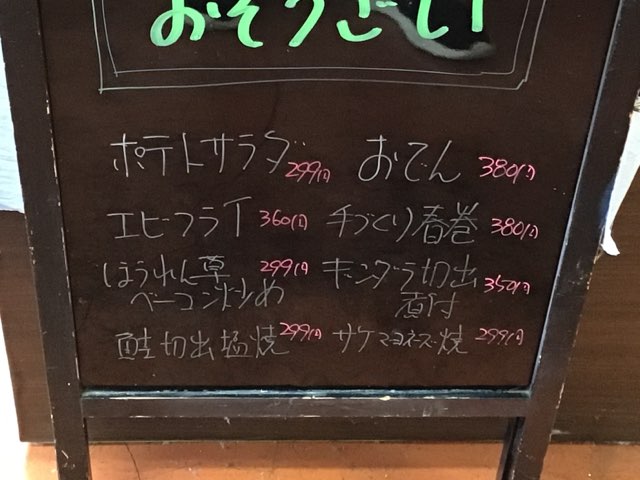 おそうざい
ポテトサラダ 299円 おでん 380円
エビフライ 360円 手づくり春巻 380円
ほうれん草 299円 ギンダラ切出 350円
ベーコン炒め 煮付
鮭切出塩焼 299円 サケマヨネーズ焼 299円